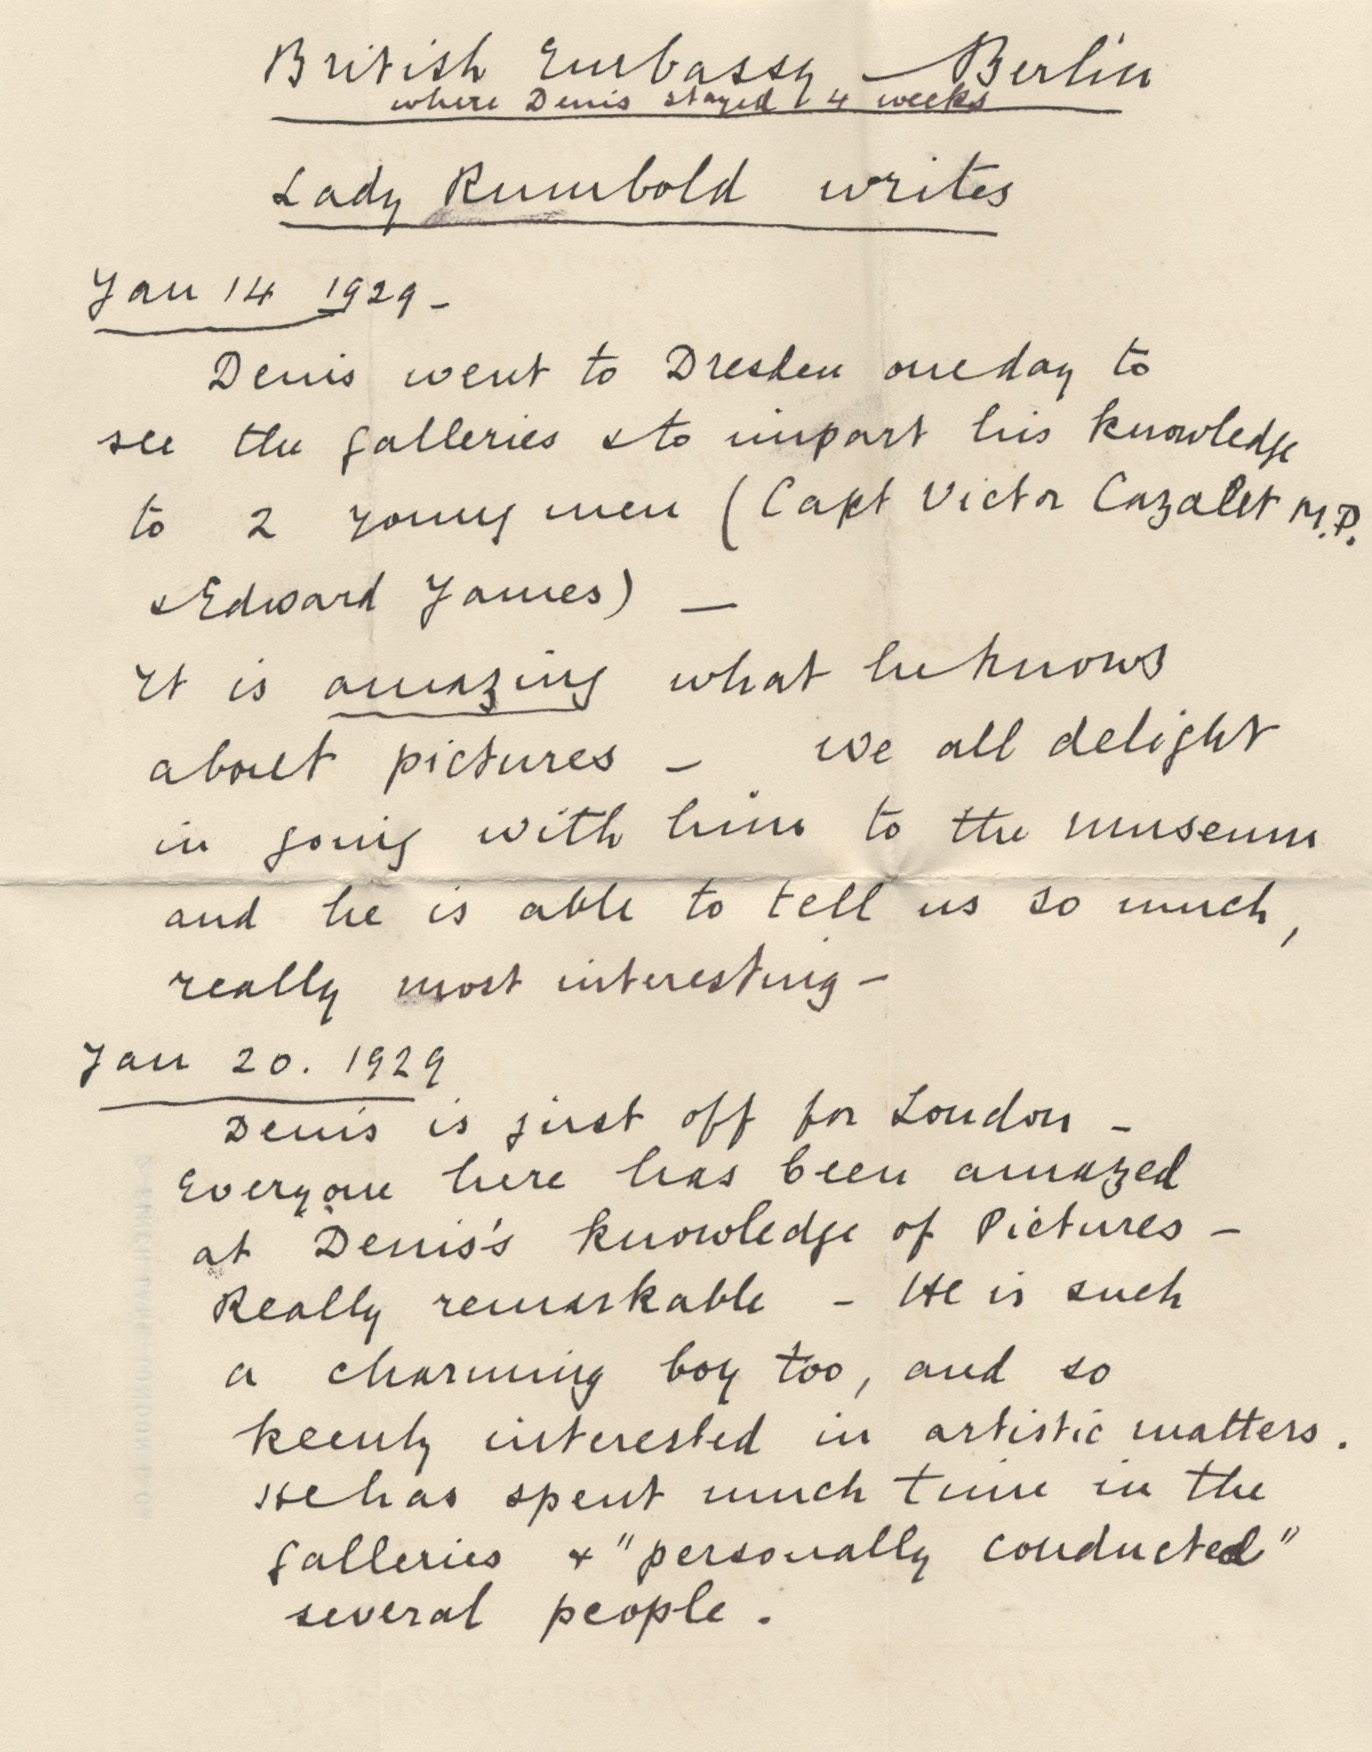 British Embassy — Berlin
where Denis stayed 4 weeks
Lady Rumbold writes
Jan 14 1929 -
Denis went to Dresden one day to
see the galleries & to impart his knowledge
to 2 young men (Capt Victor Cazalet M.P.
& Edward James) —
It is amazing what he knows
about pictures - we all delight
in going with him to the museum
and he is able to tell us so much,
really most interesting -
Jan 20. 1929
Denis is just off for London -
Everyone here has been amazed
at Denis's knowledge of Pictures -
Really remarkable - He is such
a charming boy too, and so
keenly interested in artistic matters.
He has spent much time in the
galleries & "personally conducted"
several people.